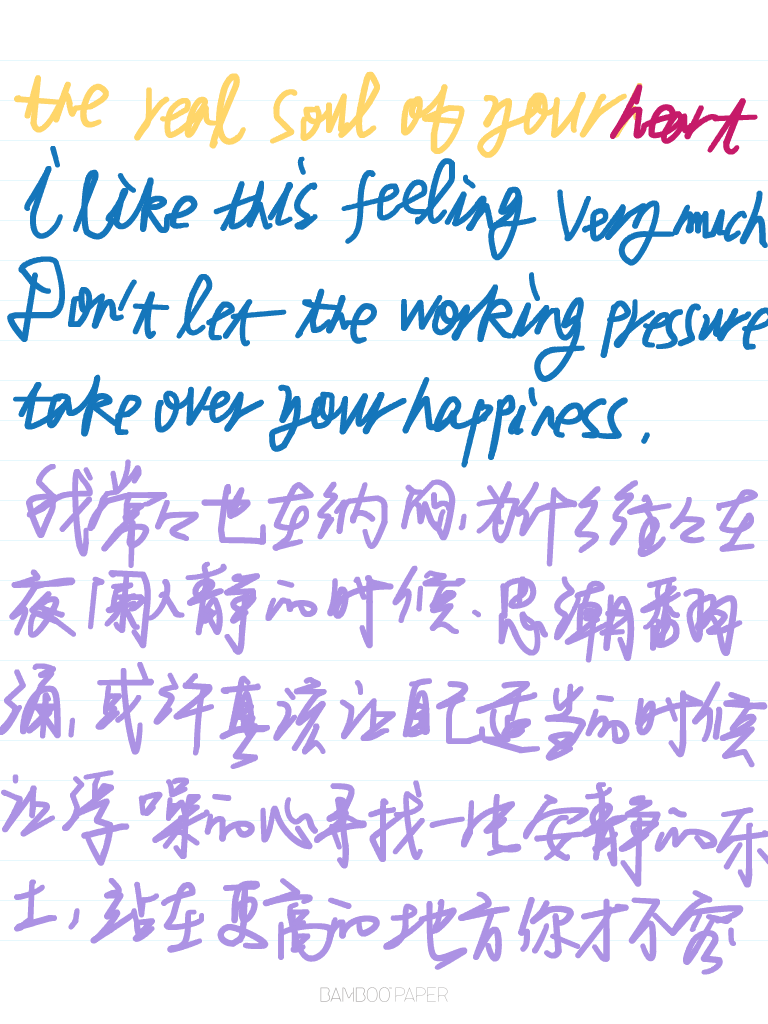 the real soul of your heart
i like this feeling very much
Don't let the working pressure
take over your happiness.
我常々也在纳闷,为什么往々在
夜阑人静的时候、思潮翻
涌,或许真该让自己适当的时候
让浮噪的心寻找一些安静的乐
土,站在更高的地方你才不容
BAMBOO PAPER